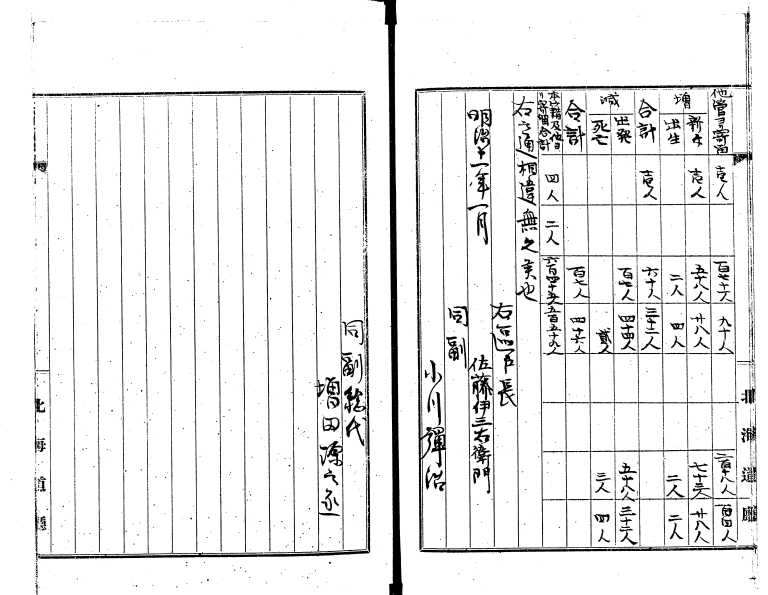 他管ヨリ寄留 壱人 百七十六人 九十人 二百六人 百四人
増 新々 壱人 五十八人 廿八人 七十三人 廿八人
出生 二人 四人 二人 二人
合計 壱人 六十人 三十二人
減 出発 百七人 四十四人 五十八人 三十三人
死亡 貳人 三人 四人
合計 百七人 四十六人
本籍及他ヨリ寄留合計 四人 二人 六百四十五人 五百五十九人
右之通相違無之候也
明治十一年一月
右區戸長
佐藤伊三右衛門
同副
小川彈治
同副総代
増田源之丞
北海道廳
北海道廳